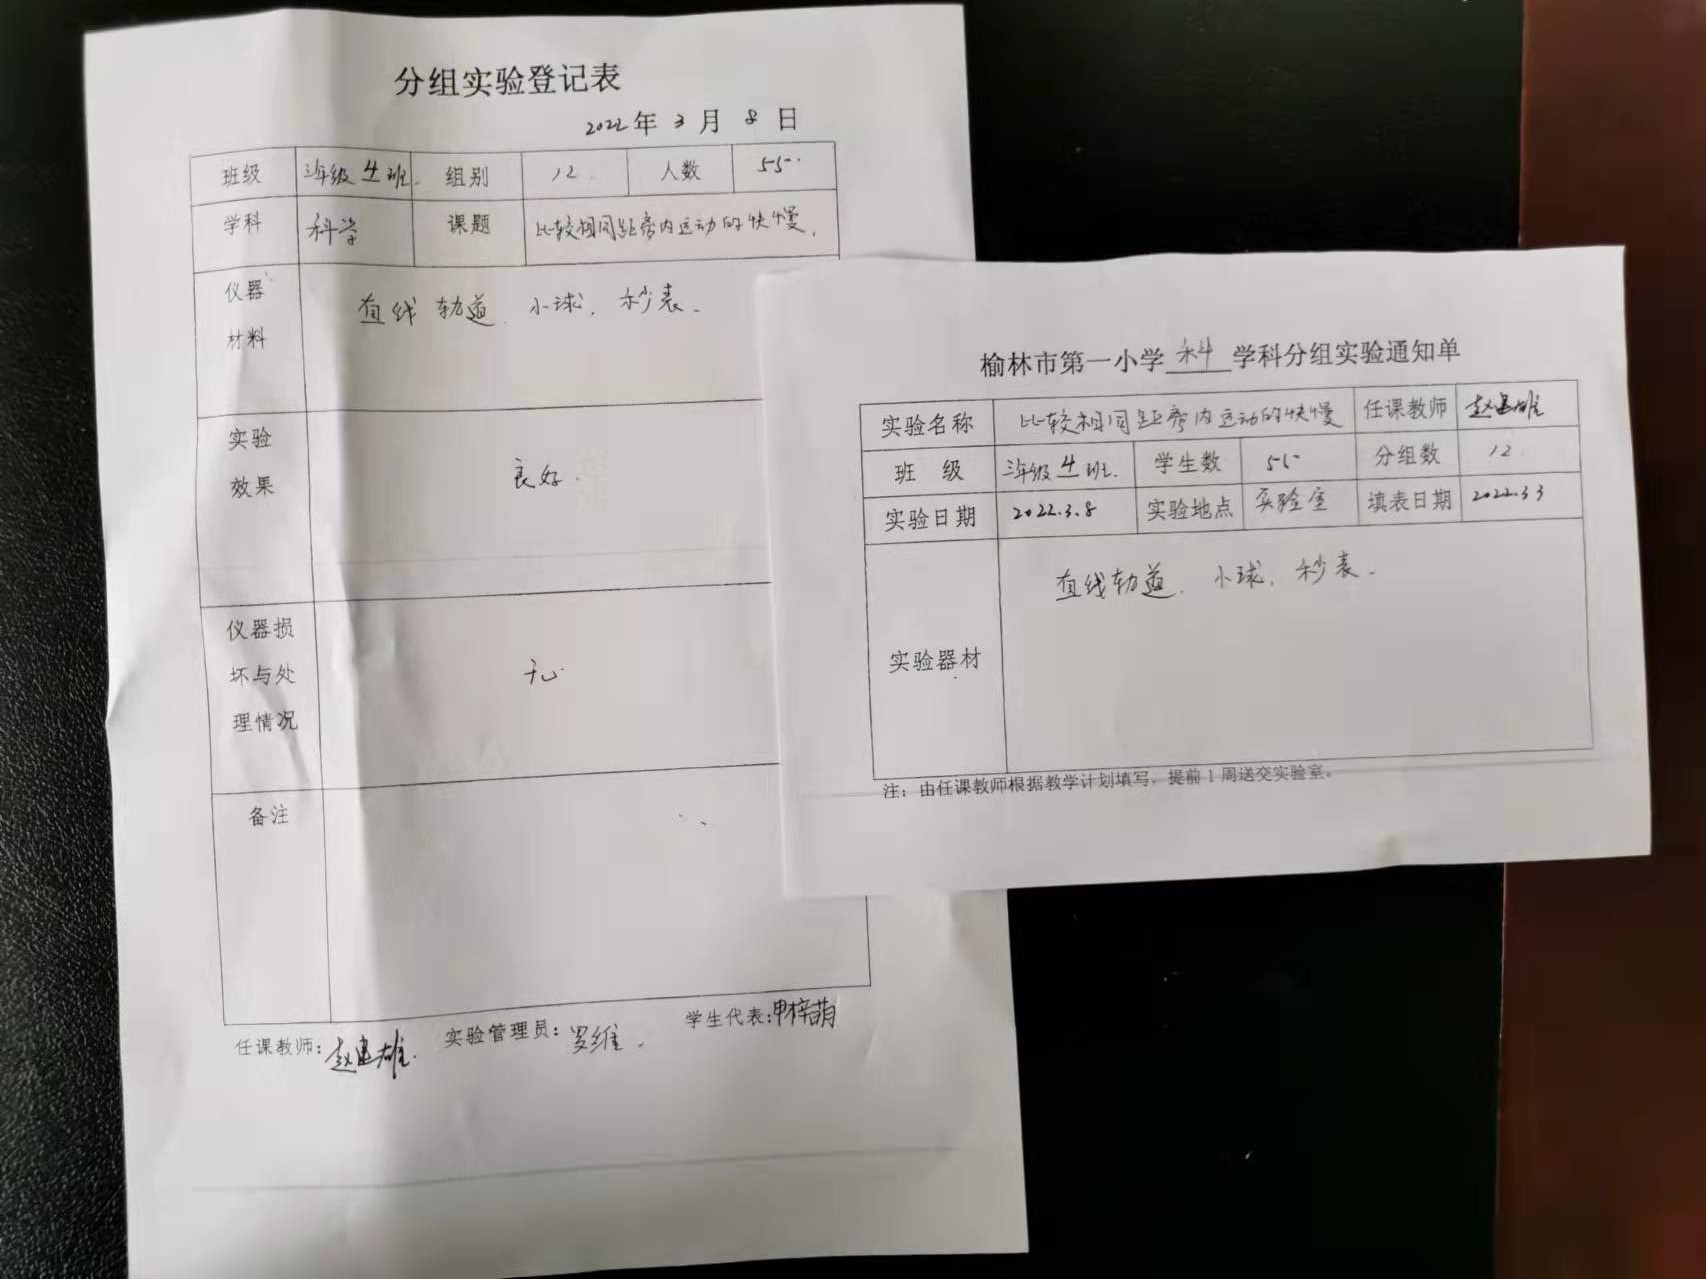 分组实验登记表
2022年 3 月 8 日
班级 三年级 4 班. 组别 12 人数 55.
学科 科学 课题 比较相同距离内运动的快慢.
仪器
材料
直线轨道. 小球. 秒表.
实验
效果
良好.
仪器损
坏与处
理情况
无.
备注
任课教师: 赵建雄. 实验管理员: 罗维. 学生代表: 申梓萌
榆林市第一小学 科 学科分组实验通知单
实验名称 比较相同距离内运动的快慢 任课教师 赵建雄
班 级 三年级 4 班. 学生数 55 分组数 12
实验日期 2022.3.8 实验地点 实验室 填表日期 2022.3 3
实验器材 直线轨道. 小球. 秒表.
注：由任课教师根据教学计划填写，提前 1 周送交实验室。